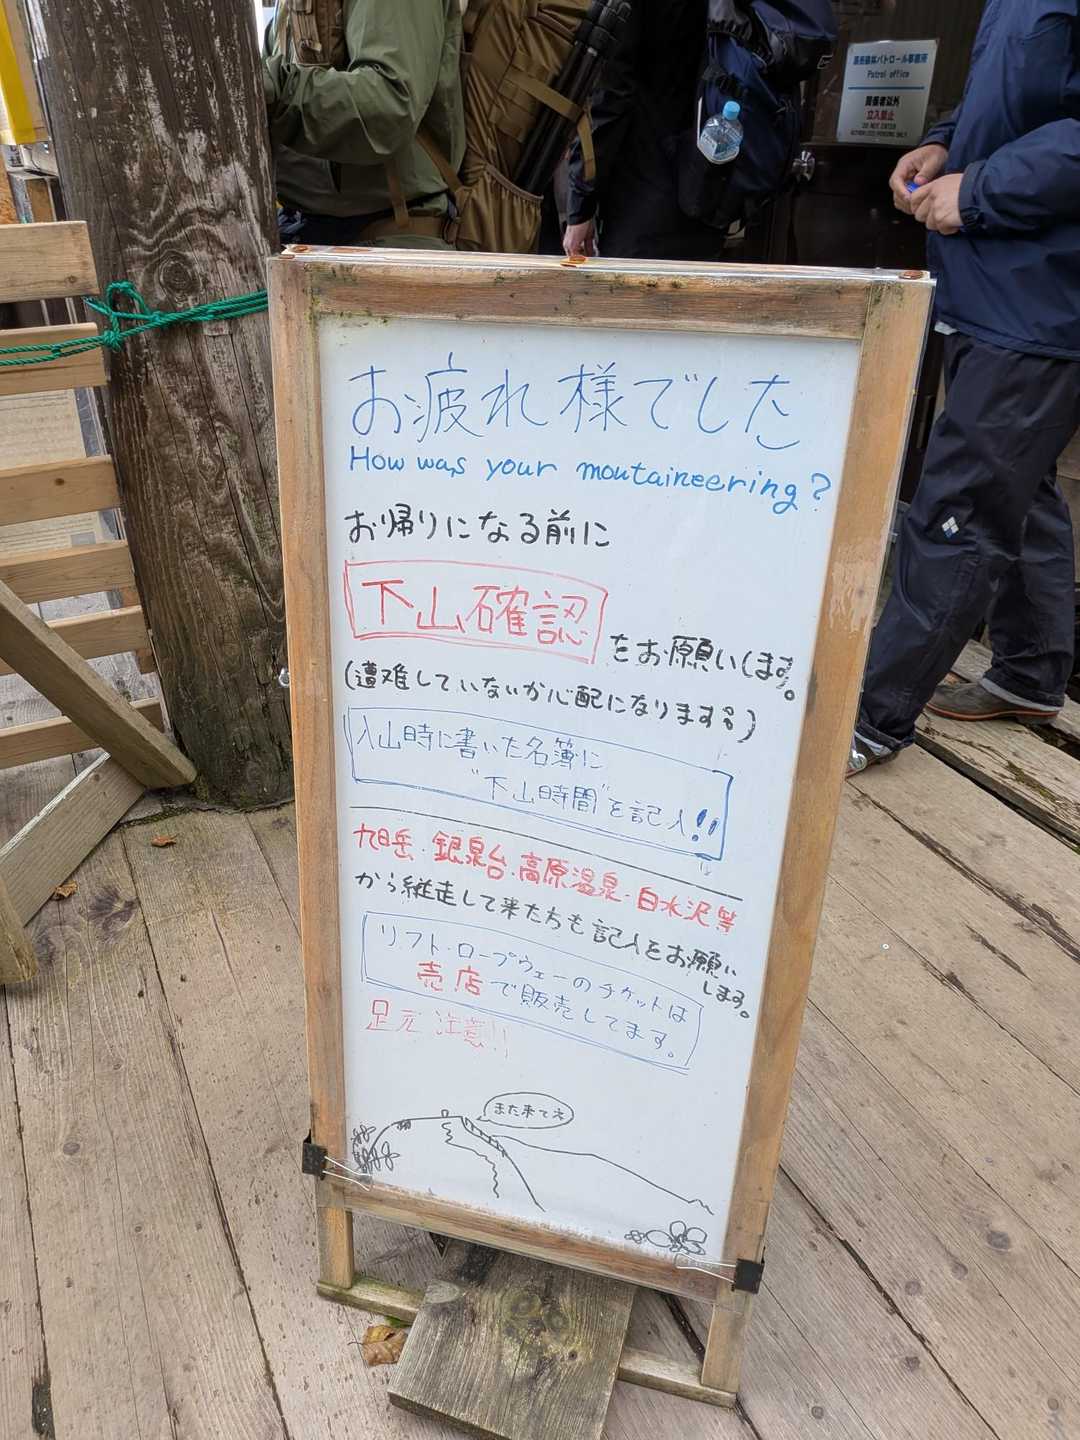 黒岳森林パトロール事務所
Patrol office
関係者以外
立入禁止
DO NOT ENTER
お疲れ様でした
How was your moutaineering?
お帰りになる前に
下山確認
をお願いします。
(遭難していないか心配になります。)
入山時に書いた名簿に
"下山時間"を記入!!
旭岳・銀泉台・高原温泉・白水沢等
から縦走して来た方も記入をお願い
します。
リフト・ロープウェーのチケットは
売店で販売してます。
足元注意!!
また来てネ